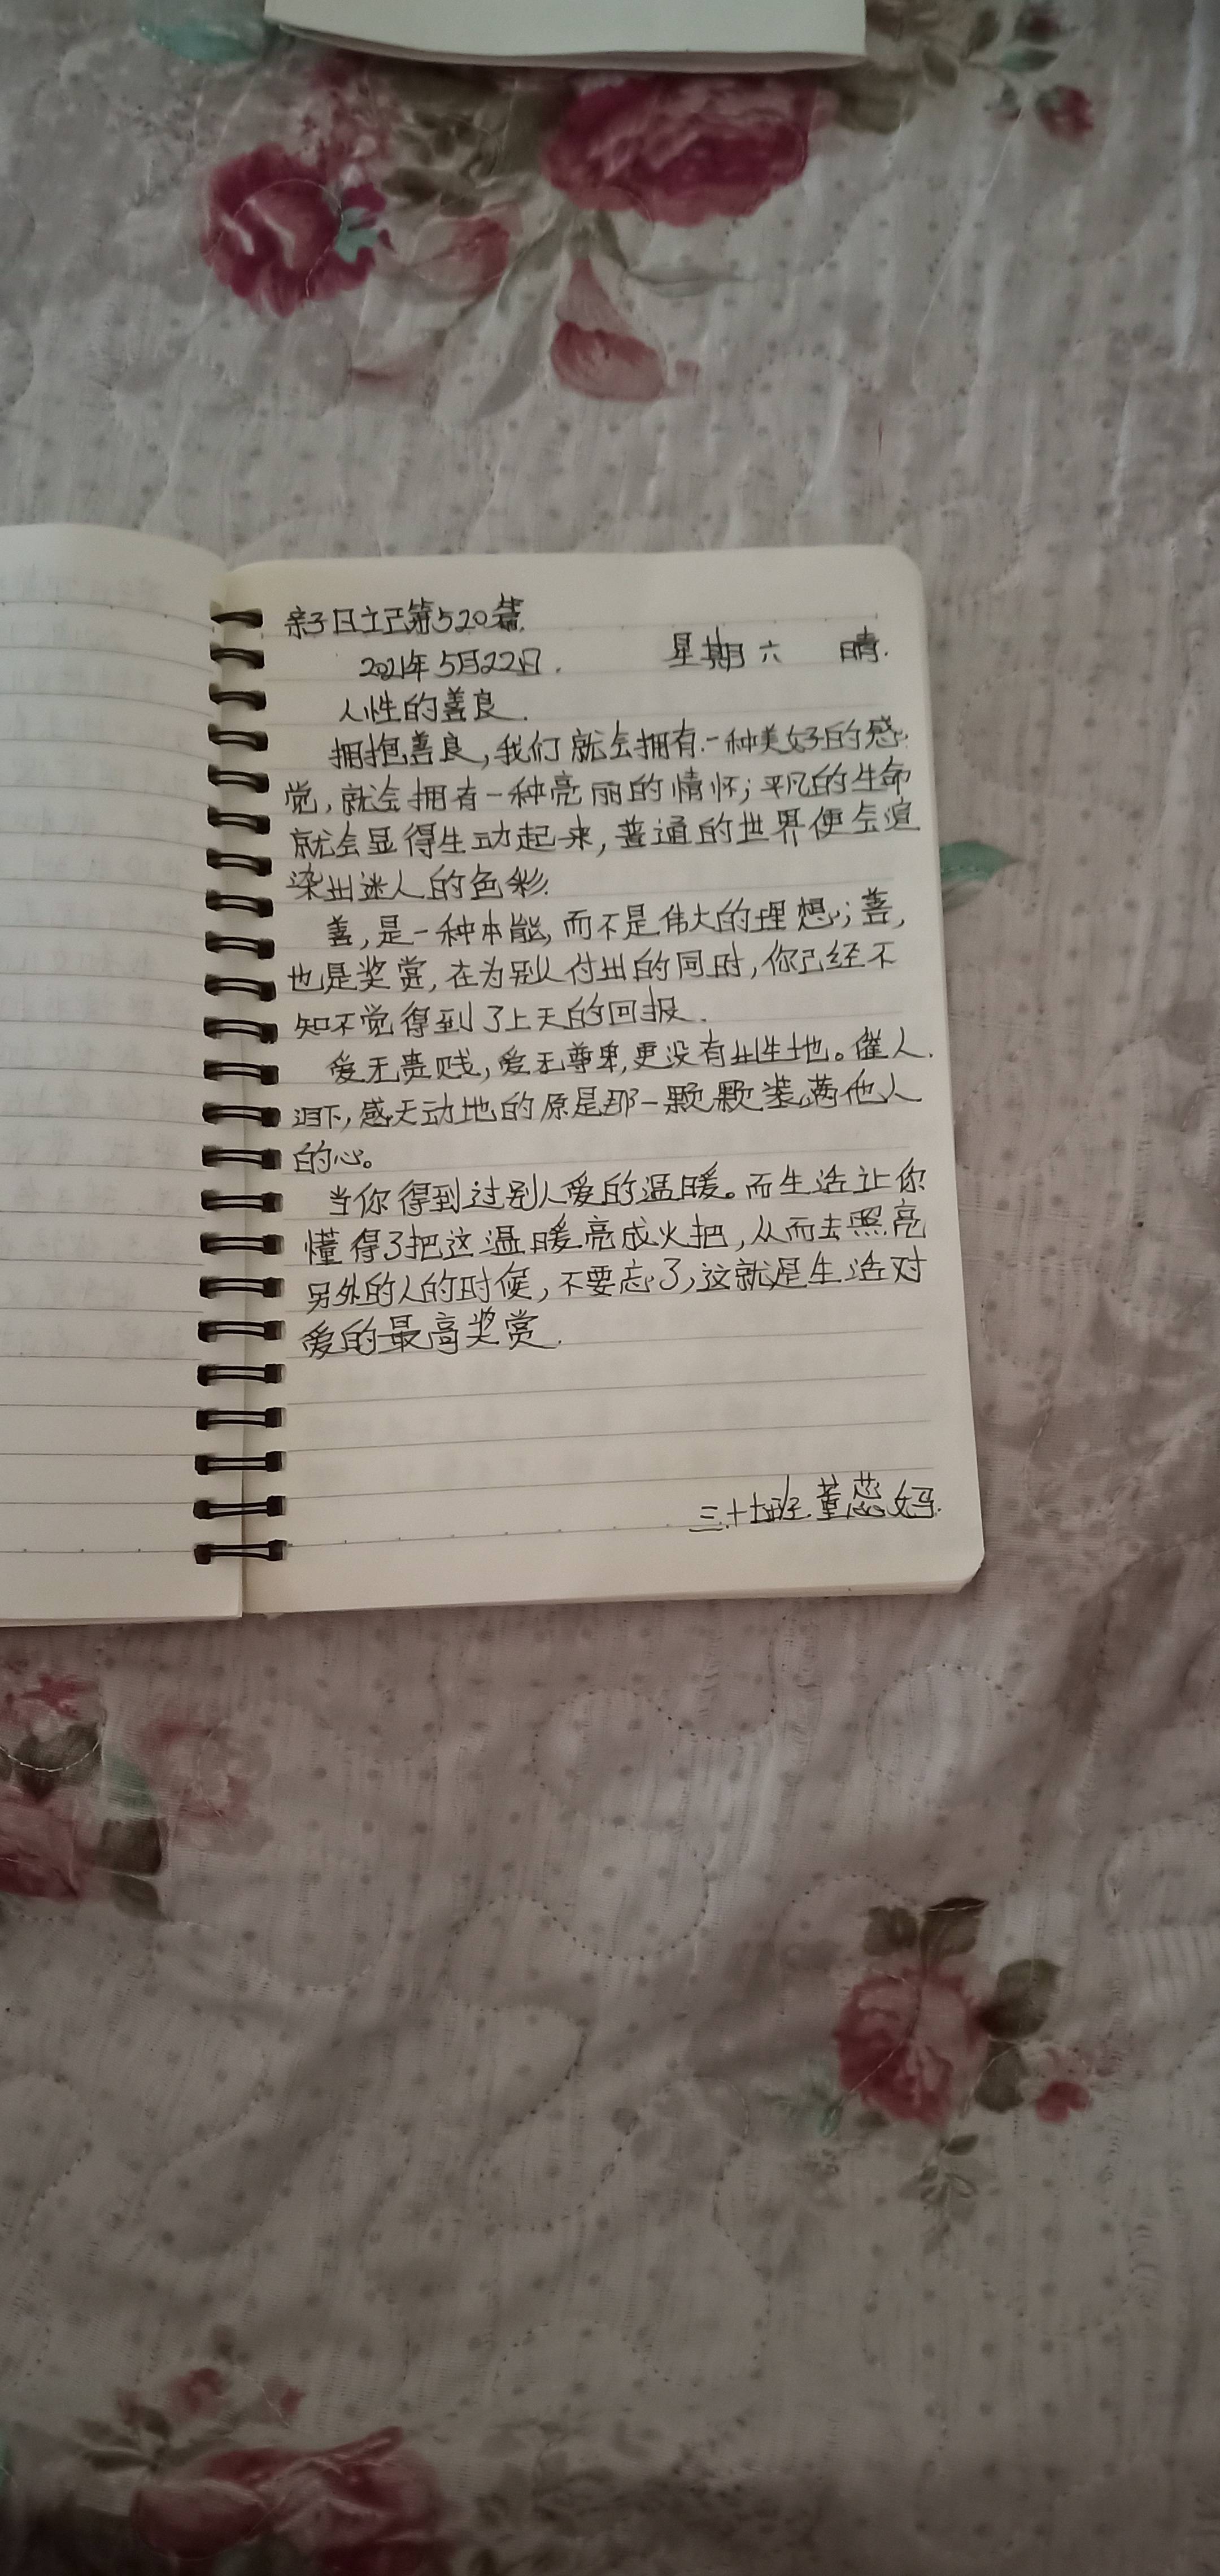 亲子日记第520篇
2021年5月22日. 星期六 晴.
人性的善良.
拥抱善良,我们就会拥有一种美好的感
觉,就会拥有一种亮丽的情怀;平凡的生命
就会显得生动起来,普通的世界便会渲
染出迷人的色彩.
善,是一种本能,而不是伟大的理想;善,
也是奖赏,在为别人付出的同时,你已经不
知不觉得到了上天的回报.
爱无贵贱,爱无尊卑,更没有出生地。催人
泪下,感天动地的原是那一颗颗装满他人
的心。
当你得到过别人爱的温暖。而生活让你
懂得了把这温暖亮成火把,从而去照亮
另外的人的时候,不要忘了,这就是生活对
爱的最高奖赏.
三.十班.董蕊妈.